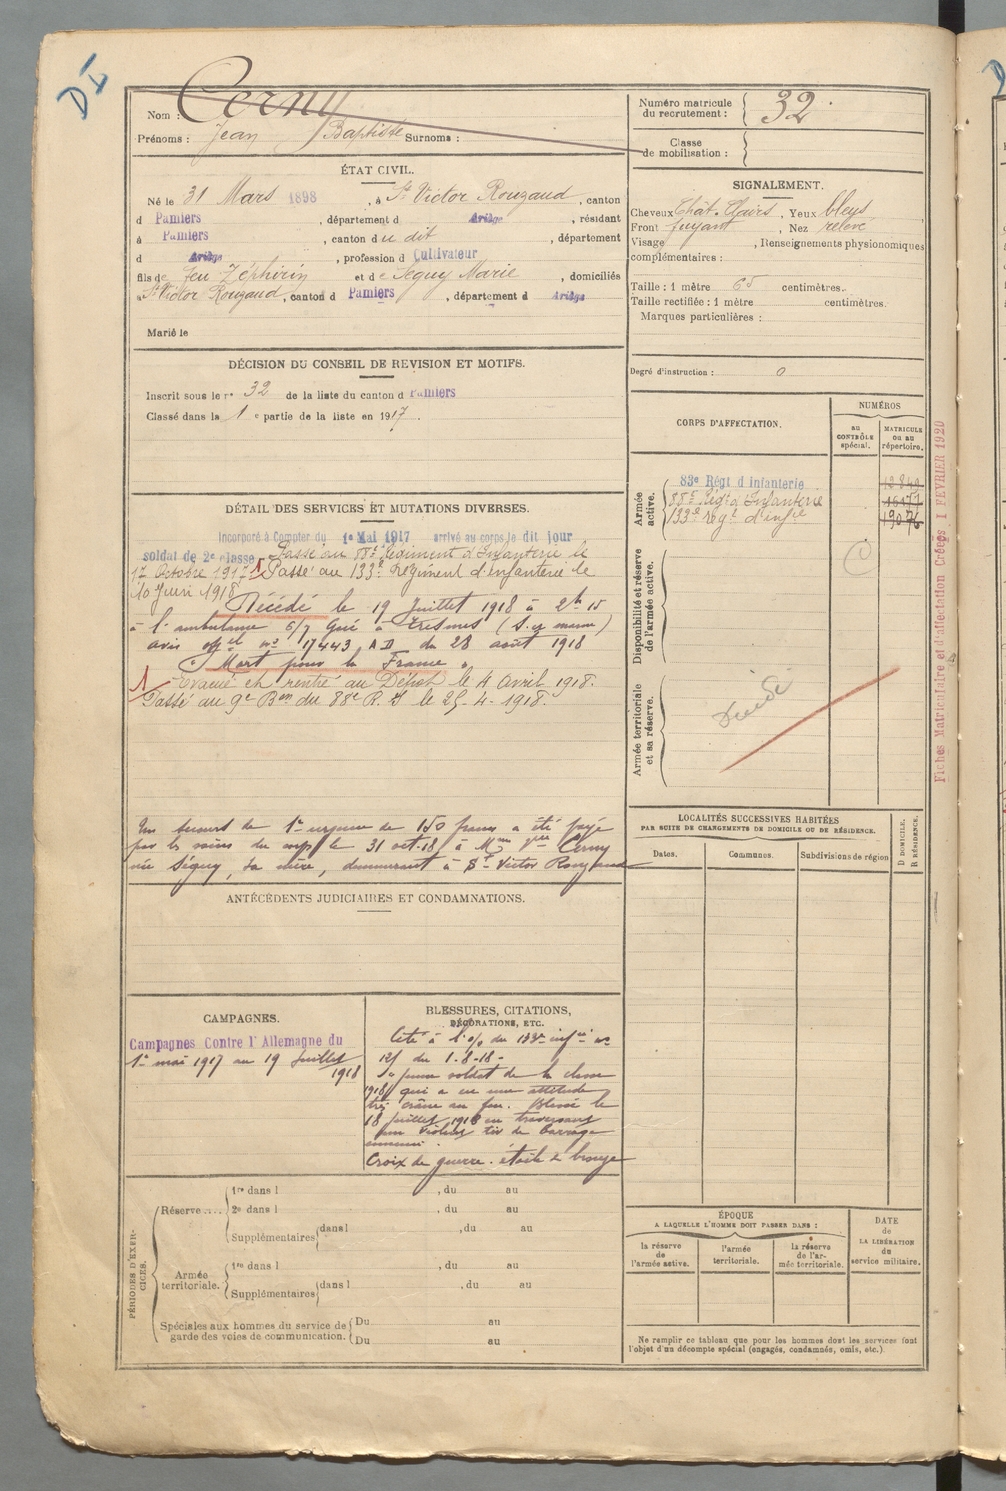 DI
Nom : Cerny
Prénoms : Jean Baptiste Surnoms :
Numéro matricule du recrutement : 32
Classe de mobilisation :
ÉTAT CIVIL.
Né le 31 Mars 1898, à St Victor Rouzaud, canton
d Pamiers, département d Ariège, résidant
à Pamiers, canton du dit, département
d Ariège, profession d Cultivateur
fils de feu Zéphirin et de Séguy Marie, domiciliés
à St Victor Rouzaud, canton d Pamiers, département d Ariège
Marié le
SIGNALEMENT.
Cheveux Chât. Clairs, Yeux bleus,
Front fuyant, Nez relevé
Visage , Renseignements physionomiques
complémentaires :
Taille : 1 mètre 65 centimètres.
Taille rectifiée : 1 mètre centimètres.
Marques particulières :
Degré d'instruction : 0
DÉCISION DU CONSEIL DE REVISION ET MOTIFS.
Inscrit sous le no 32 de la liste du canton d Pamiers
Classé dans la 1e partie de la liste en 1917.
DÉTAIL DES SERVICES ET MUTATIONS DIVERSES.
Incorporé à Compter du 1e Mai 1917 arrivé au corps le dit jour
soldat de 2e classe Passé au 88e Régiment d'Infanterie le
17 Octobre 1917 Passé au 133e Régiment d'infanterie le
10 Juin 1918
Décédé le 19 Juillet 1918 à 2h 15
à l'ambulance 6/7 Gué à Tresmes (S. et marne)
avis offel no 17443 AD du 28 août 1918
"Mort pour la France"
Evacué et rentré au Dépôt le 4 Avril 1918.
Passé au 9e Bon du 88e R.I le 25-4-1918.
Un secours de 1re urgence de 150 francs a été payé
par les soins du corps le 31 oct. 18 à Mme Vve Cerny
née Séguy, sa mère, demeurant à St Victor Rouzaud
CORPS D'AFFECTATION.
NUMÉROS
au CONTRÔLE spécial.
MATRICULE ou au répertoire.
Armée active.
83e Régt d'Infanterie
88e Régt d'Infanterie
133e Régt d'infie 19076
Disponibilité et réserve de l'armée active.
C
Armée territoriale et sa réserve.
Décédé
Fiches Matriculaire et d'affectation Créées 1 FEVRIER 1920
LOCALITÉS SUCCESSIVES HABITÉES
PAR SUITE DE CHANGEMENTS DE DOMICILE OU DE RÉSIDENCE.
Dates. Communes. Subdivisions de région
D DOMICILE. R RÉSIDENCE.
ANTÉCÉDENTS JUDICIAIRES ET CONDAMNATIONS.
CAMPAGNES.
Campagnes Contre l'Allemagne du
1er mai 1917 au 19 Juillet
1918
BLESSURES, CITATIONS,
DÉCORATIONS, ETC.
Cité à l'o/ du 133e infie no
121 du 1-8-18-
"jeune soldat de la classe
1918 qui a eu une attitude
très crâne au feu. Blessé le
18 juillet 1918 en traversant
un violent tir de barrage
ennemi.
Croix de guerre. étoile de bronze
PÉRIODES D'EXERCICES.
Réserve....
1re dans l , du au
2e dans l , du au
Supplémentaires dans l , du au
Armée territoriale.
1re dans l , du au
Supplémentaires dans l , du au
Spéciales aux hommes du service de garde des voies de communication.
Du au
Du au
ÉPOQUE
A LAQUELLE L'HOMME DOIT PASSER DANS :
la réserve de l'armée active.
l'armée territoriale.
la réserve de l'armée territoriale.
DATE de LA LIBÉRATION du service militaire.
Ne remplir ce tableau que pour les hommes dont les services font
l'objet d'un décompte spécial (engagés, condamnés, omis, etc.).